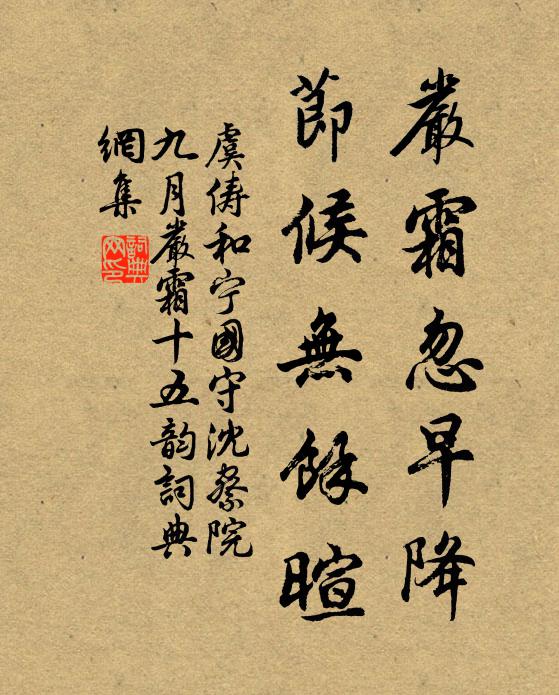 嚴霜忽早降
節候無餘暄
虞儔和宁國守沈察院
九月嚴霜十五韵詞典
網集
詞典网印